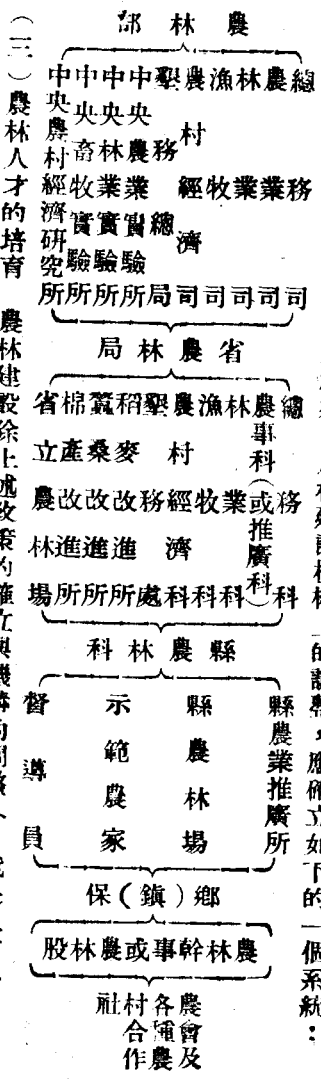 的 應確立如下的一個系統：
農林部
總務司
農業司
林業司
漁牧司
農村經濟司
墾務總局
中央農業實驗所
中央林業實驗所
中央畜牧實驗所
中央農村經濟研究所
省農林局
總務科
農事科（或推廣科）
林業科
漁牧科
農村經濟科
墾務處
稻麥改進所
蠶桑改進所
棉產改進所
省立農林場
縣農林科
縣農業推廣所
縣農林場
示範農家
督導員
鄉（鎮）保
農林幹事或農林股
農會及
各種農
村合作
社
（三）農林人才的培育　農林建設除上述政策的確立與機構的